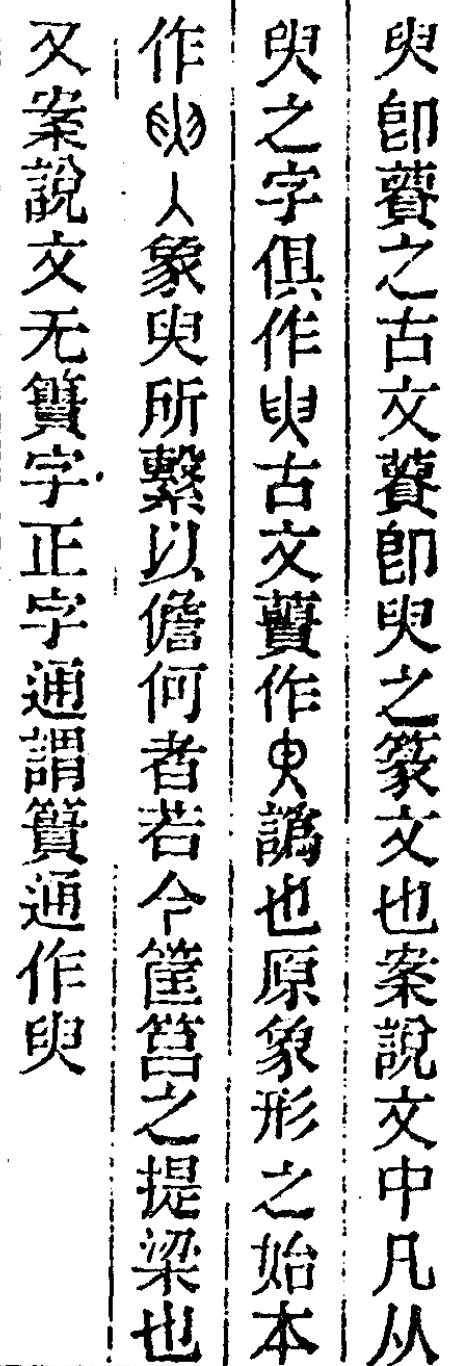 臾卽蕢之古文蕢卽臾之篆文也案說文中凡从
臾之字俱作臾古文蕢作臾譌也原象形之始本
作人象臾所繫以儋何者若今筐筥之提梁也
又案說文无簣字正字通謂簣通作臾